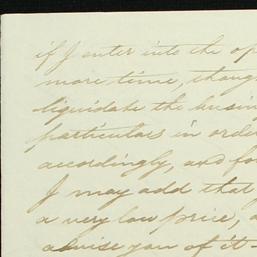 if I enter into the op
more time, though
liquidate the busin
particulars in orde
accordingly, and fo
I may add that
a very low price, a
advise you of it -